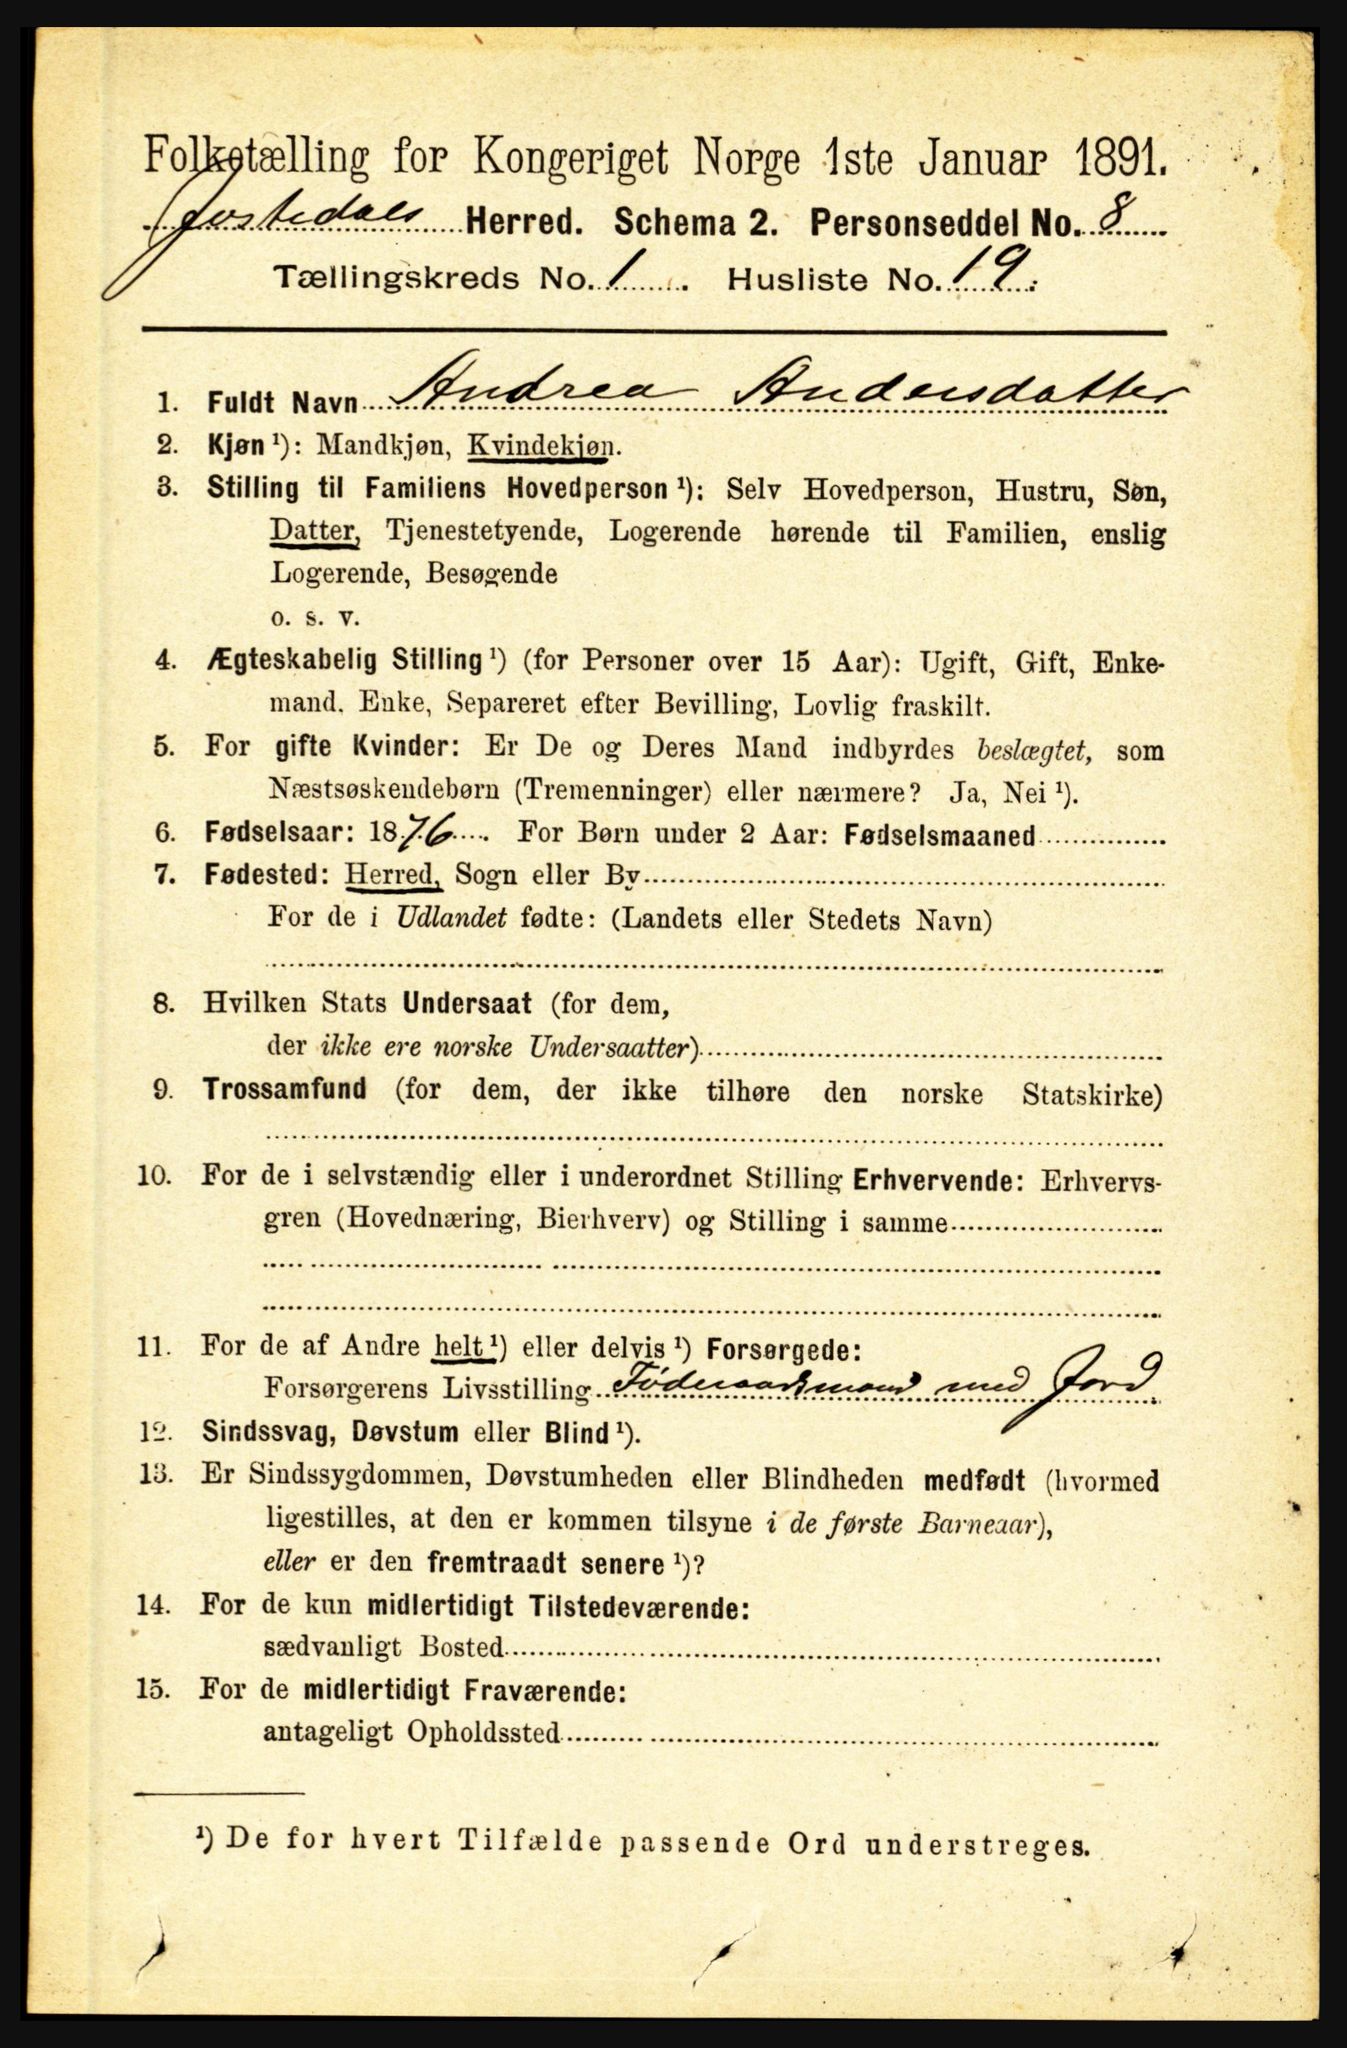 Folketælling for Kongeriget Norge 1ste Januar 1891.
Jostedals Herred. Schema 2. Personseddel No. 8
Tællingskreds No. 1. Husliste No. 19.
1. Fuldt Navn Andrea Andersdatter
2. Kjøn ¹): Mandkjøn, Kvindekjøn.
3. Stilling til Familiens Hovedperson ¹): Selv Hovedperson, Hustru, Søn,
Datter, Tjenestetyende, Logerende hørende til Familien, enslig
Logerende, Besøgende
o. s. v.
4. Ægteskabelig Stilling ¹) (for Personer over 15 Aar): Ugift, Gift, Enke-
mand. Enke, Separeret efter Bevilling, Lovlig fraskilt.
5. For gifte Kvinder: Er De og Deres Mand indbyrdes beslægtet, som
Næstsøskendebørn (Tremenninger) eller nærmere? Ja, Nei ¹).
6. Fødselsaar: 1876. For Børn under 2 Aar: Fødselsmaaned
7. Fødested: Herred, Sogn eller By
For de i Udlandet fødte: (Landets eller Stedets Navn)
8. Hvilken Stats Undersaat (for dem,
der ikke ere norske Undersaatter)
9. Trossamfund (for dem, der ikke tilhøre den norske Statskirke)
10. For de i selvstændig eller i underordnet Stilling Erhvervende: Erhvervs-
gren (Hovednæring, Bierhverv) og Stilling i samme
11. For de af Andre helt ¹) eller delvis ¹) Forsørgede:
Forsørgerens Livsstilling Føderaadsmand med Jord
12. Sindssvag, Døvstum eller Blind ¹).
13. Er Sindssygdommen, Døvstumheden eller Blindheden medfødt (hvormed
ligestilles, at den er kommen tilsyne i de første Barneaar),
eller er den fremtraadt senere ¹)?
14. For de kun midlertidigt Tilstedeværende:
sædvanligt Bosted
15. For de midlertidigt Fraværende:
antageligt Opholdssted
¹) De for hvert Tilfælde passende Ord understreges.